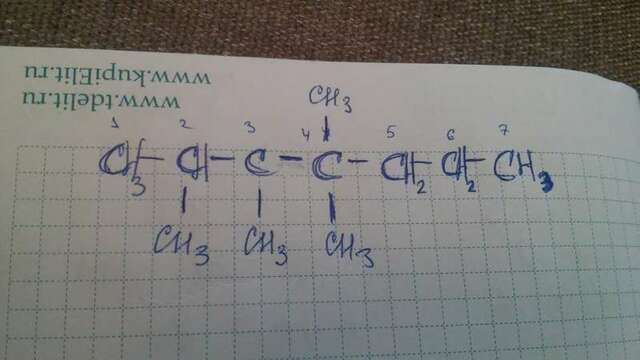 www.kupiElit.ru
www.tdelit.ru
CH3
1 2 3 4 5 6 7
CH3-CH-C-C-CH2-CH2-CH3
CH3 CH3 CH3